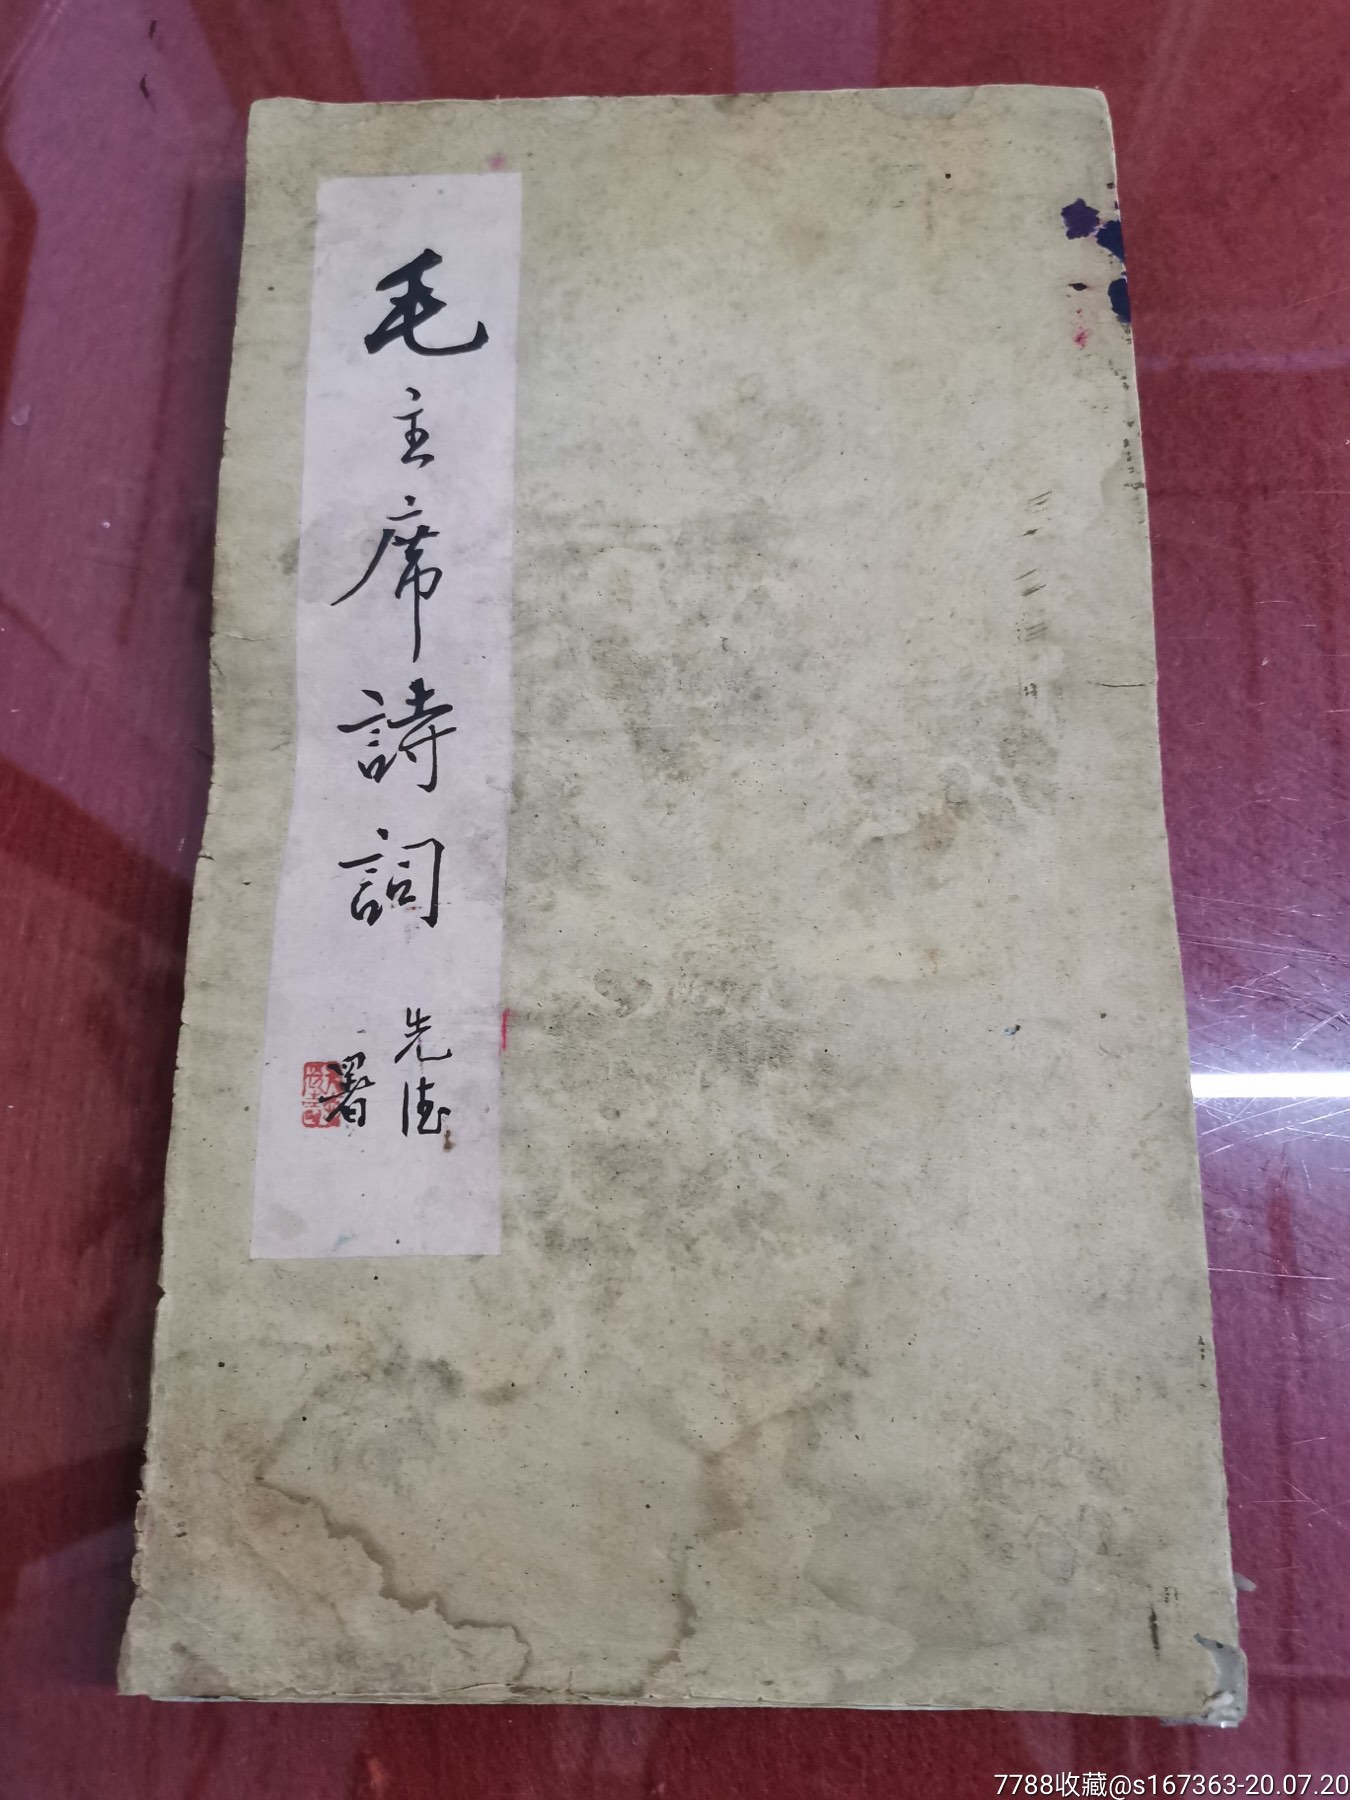 毛主席詩詞
先德
署
7788收藏@s167363-20.07.20